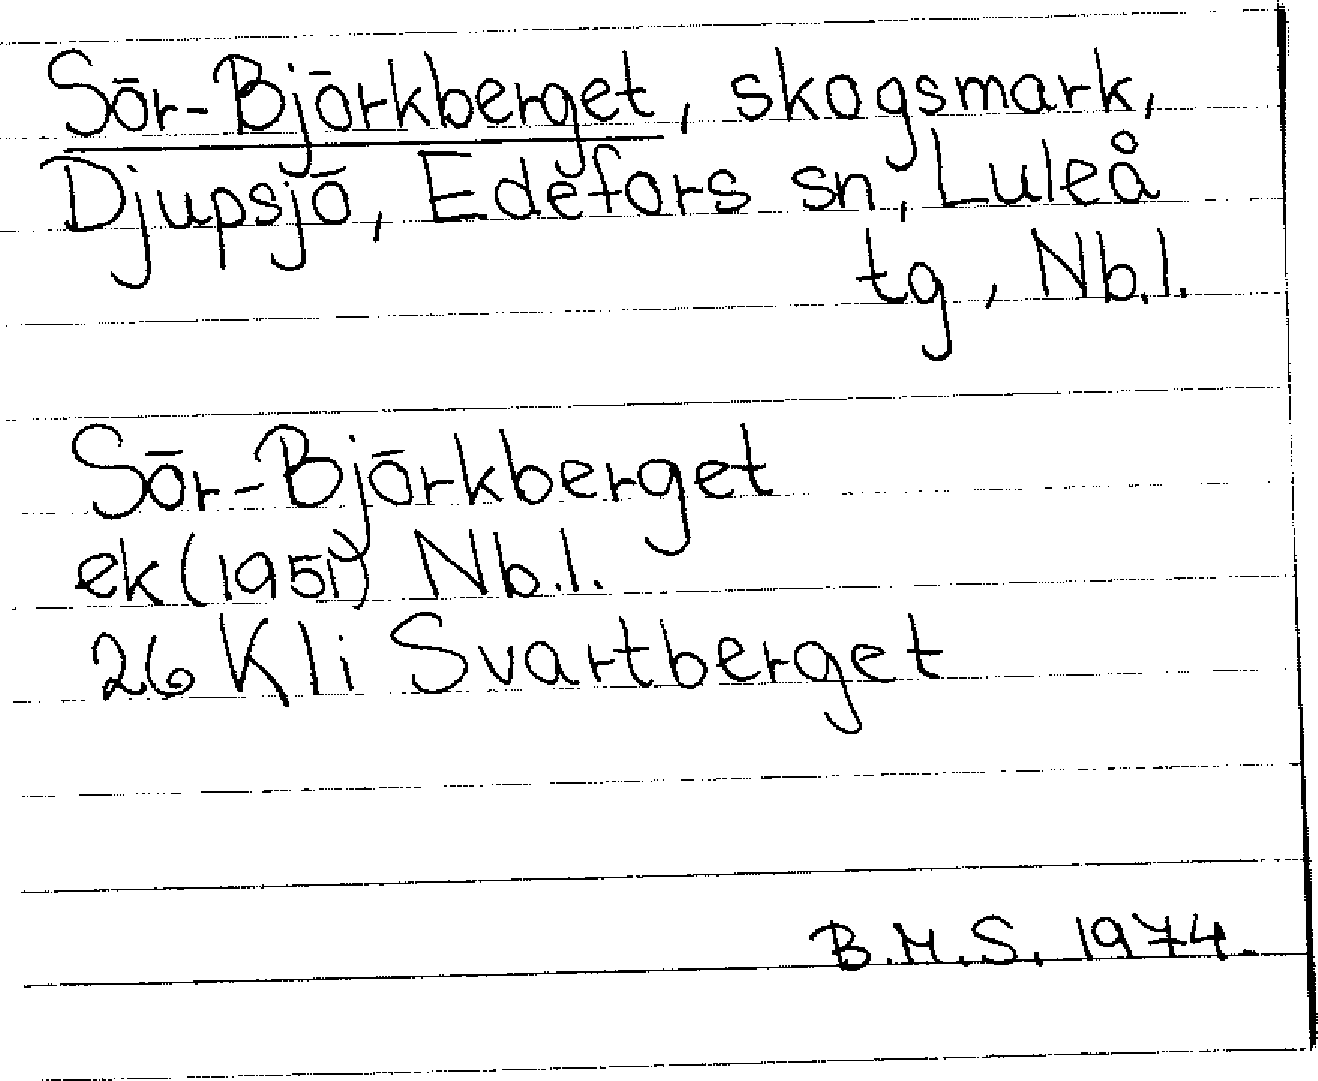 Sör-Björkberget, skogsmark,
Djupsjö, Edefors sn, Luleå
tg, Nb.l.
Sör-Björkberget
ek (1951) Nb.l.
26 Kli Svartberget
B.M.S. 1974.